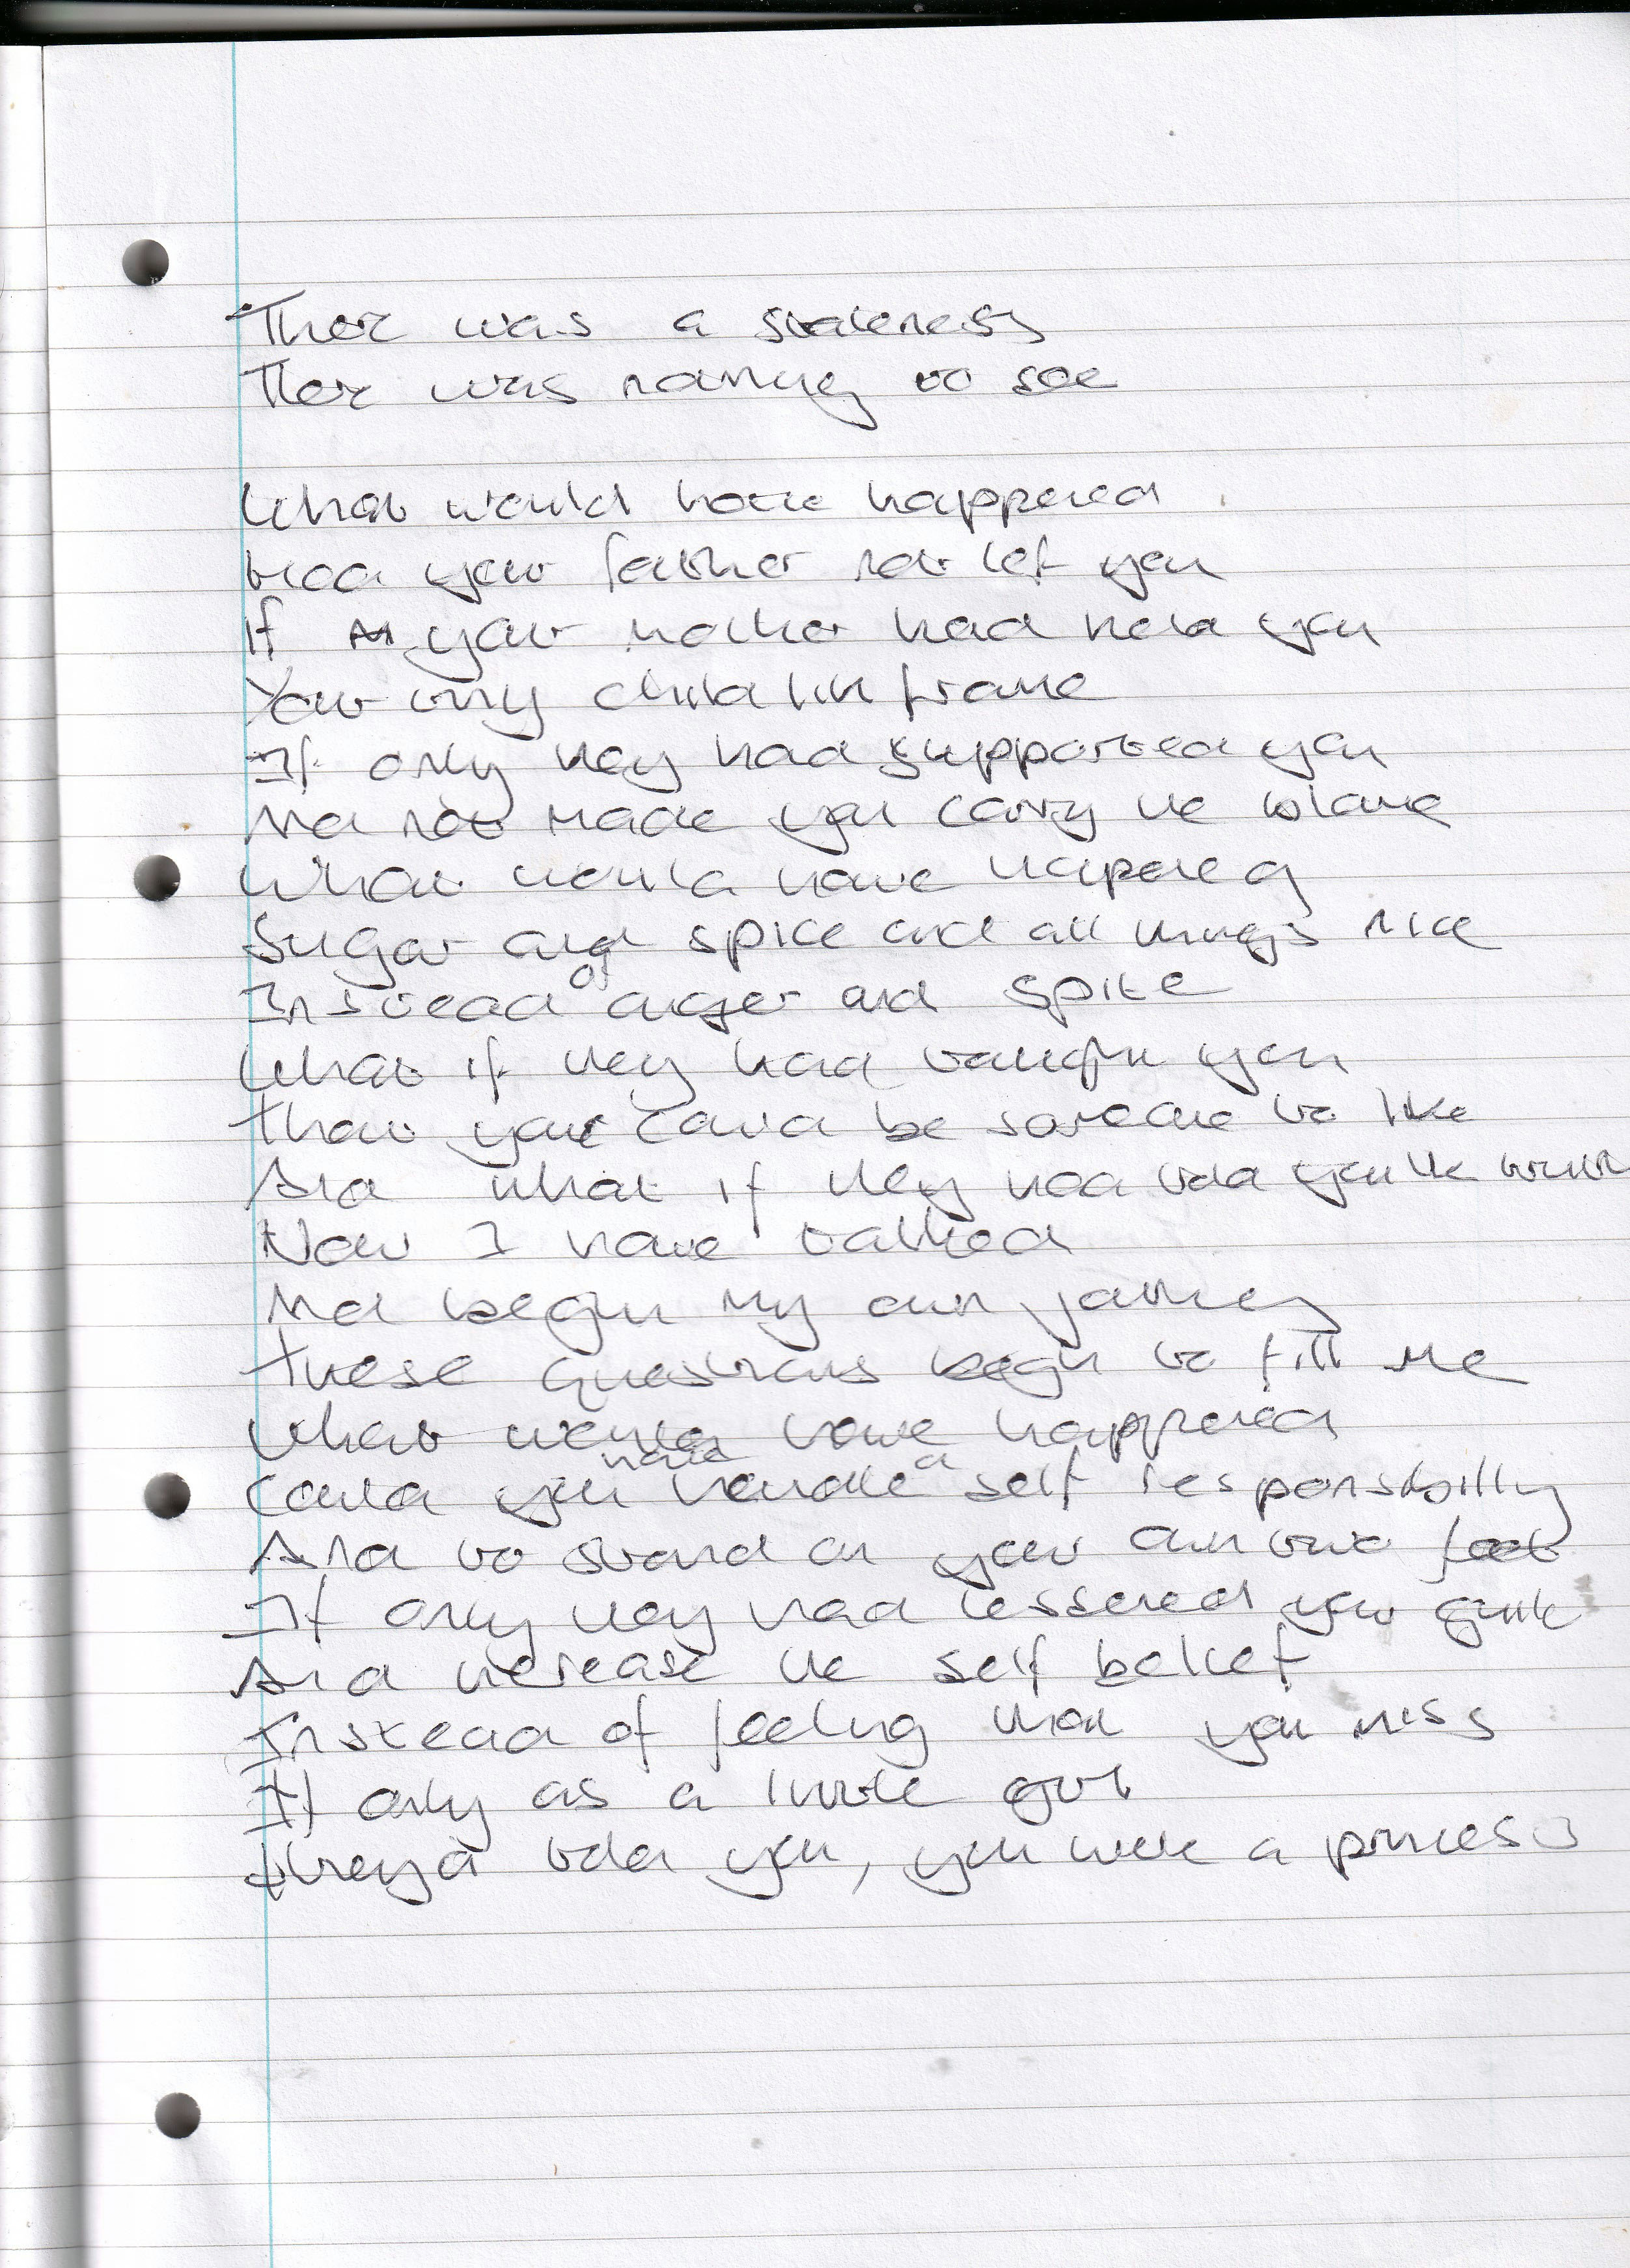 There was a staleness
There was nothing to see
What would have happened
Had your father not left you
If your mother had held you
Your tiny child like frame
If only they had supported you
And not made you carry the blame
What would have happened
Sugar and spice and all things nice
Instead of anger and spite
What if they had taught you
That you could be someone to like
And what if they had told you the truth
Now I have talked
And begin my own journey
These questions begin to fill me
What would have happened
Could you have a self responsibility
And to stand on your own two feet
If only they had lessened your guilt
And increase the self belief
Instead of feeling that you miss
If only as a little girl
they'd told you, you were a princess